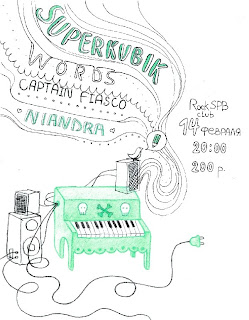 SUPERKUBIK
WORDS
CAPTAIN FIASCO
NIANDRA
RockSPB
club
14 февраля
20:00
200 р.